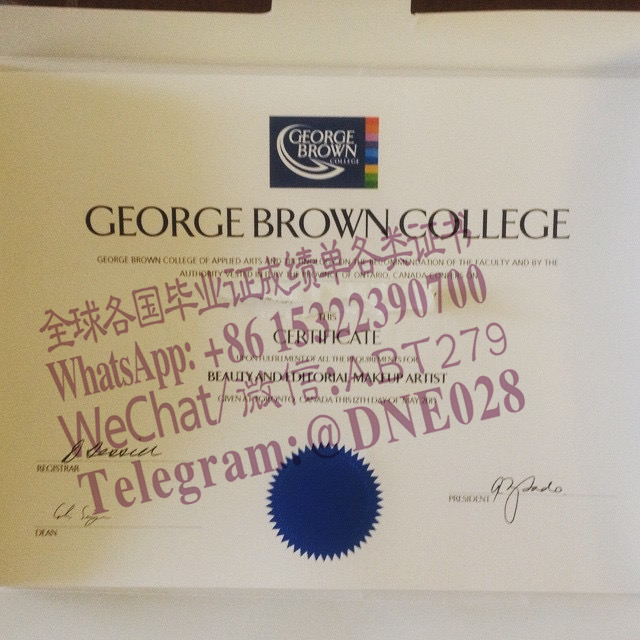 GEORGE
BROWN
COLLEGE
GEORGE BROWN COLLEGE
GEORGE BROWN COLLEGE OF APPLIED ARTS AND TECHNOLOGY ON THE RECOMMENDATION OF THE FACULTY AND BY THE
AUTHORITY VESTED IN IT BY THE PROVINCE OF ONTARIO, CANADA CONFERS ON
全球各国毕业证成绩单各类证书
THIS
WhatsApp: +86 15322390700
CERTIFICATE
UPON FULFILLMENT OF ALL THE REQUIREMENTS FOR
WeChat/微信: ABT279
BEAUTY AND EDITORIAL MAKEUP ARTIST
GIVEN AT TORONTO, CANADA THIS 12TH DAY OF MAY
Telegram: @DNE028
REGISTRAR
PRESIDENT
DEAN